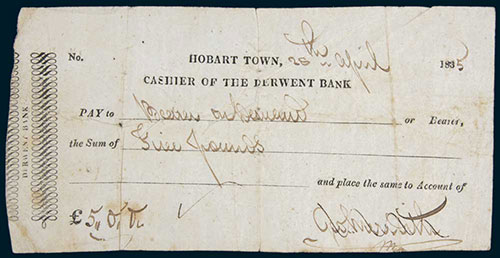 DERWENT BANK
No. HOBART TOWN, 20th April 1835
CASHIER OF THE DERWENT BANK
PAY to or Bearer,
the Sum of Five Pounds
and place the same to Account of
£ 5,, 0,, 0